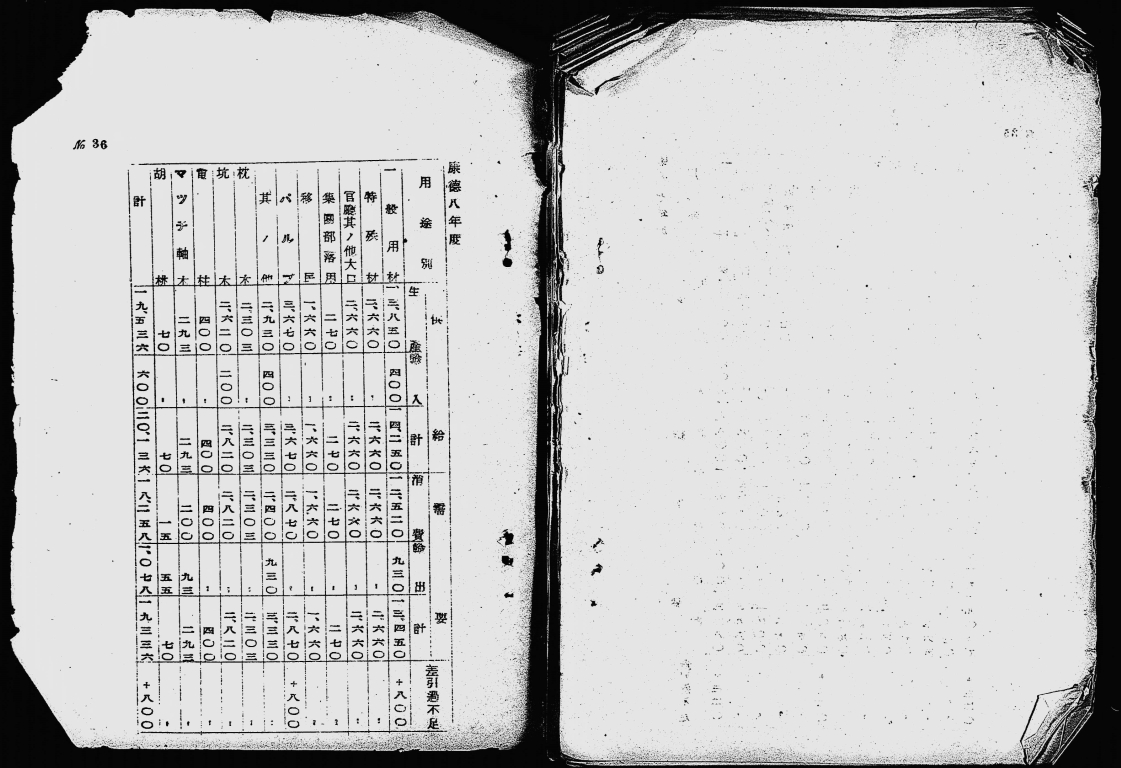 № 36
康德八年度
用途別 供給 生産 輸入 計 需要 消費 輸出 計 差引過不足
一般用材 一三、八五〇 四〇〇 一四、二五〇 一二、五二〇 九三〇 一三、四五〇 +八〇〇
特殊材 二、六六〇 〃 二、六六〇 二、六六〇 〃 二、六六〇 〃
官廳其ノ他大口 二、六六〇 〃 二、六六〇 二、六六〇 〃 二、六六〇 〃
集團部落用 二七〇 〃 二七〇 二七〇 〃 二七〇 〃
移民 一、六六〇 〃 一、六六〇 一、六六〇 〃 一、六六〇 〃
パルプ 三、六七〇 〃 三、六七〇 二、八七〇 〃 二、八七〇 +八〇〇
其ノ他 二、九三〇 四〇〇 三、三三〇 二、四〇〇 九三〇 三、三三〇 〃
枕木 二、三〇三 〃 二、三〇三 二、三〇三 〃 二、三〇三 〃
坑木 二、六二〇 二〇〇 二、八二〇 二、八二〇 〃 二、八二〇 〃
電柱 四〇〇 〃 四〇〇 四〇〇 〃 四〇〇 〃
マツチ軸木 二九三 〃 二九三 二〇〇 九三 二九三 〃
胡桃 七〇 〃 七〇 一五 五五 七〇 〃
計 一九、五三六 六〇〇 二〇、一三六 一八、二五八 一、〇七八 一九、三三六 +八〇〇